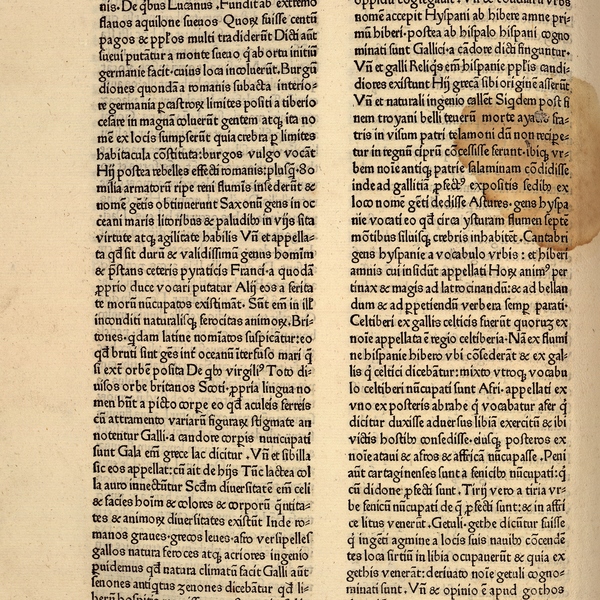 nis. De qbus Lucanus. Fundit ab extremo
flauos aquilone sueuos Quoꝝ fuisse centū
pagos & pplos multi tradiderūt Dicti aūt
sueui putātur a monte sueuo q ab ortu initiū
germanie facit. cuius loca incoluerūt. Burgū
diones quondā a romanis subacta interio-
re germania p castroꝝ limites positi a tiberio
cesare in magnā coluerūt gentem atq; ita no
mē ex locis sumpserūt quia crebra p limites
habitacula cōstituta: burgos vulgo vocāt
Hij postea rebelles effecti romanis: plusq̄. 80
milia armatorū ripe reni flumīs insederūt &
nomē gētis obtinuerunt Saxonū gens in oc
ceani maris litoribus & paludib̄ in vijs sita
virtute atq; agilitate habilis Vñ et appella-
ta qd̄ sit durū & validissimū genus hominū
& p̄stans ceteris pyraticis Franci. a quodā
ꝓprio duce vocari putatur Alij eos a ferita
te morū nūcupatos existimāt. Sūt em̄ in ill'
inconditi naturalisq; ferocitas animoꝝ. Bri-
tones. qdam latine nomīatos suspicātur: eo
qd̄ bruti sint gēs intˀ oceanū īterfuso mari q̄
si extˀ orbē posita De qb̄ virgiliꝰ Toto di-
uisos orbe britanos Scoti. ꝓpria lingua no
men hn̄t a picto corpe eo qd̄ aculeis ferreis
cū attramento variarū figuraꝝ stigmate an
notentur Galli. a candore corpis nuncupati
sunt Gala em̄ grece lac dicitur. Vñ et sibilla
sic eos appellat: cū ait de hijs Tūc lactea col
la auro innectūtur Scdm̄ diuersitatē em̄ celi
& facies hoīm & colores & corporū q̄ntita-
tes & animoꝝ diuersitates existūt Inde ro-
manos graues. grecos leues. afro versipelles
gallos natura feroces atq; acriores ingenio
puidemus qd̄ natura climatū facit Galli aūt
senones antiqtus zenones dicebātur qd̄ li
nomē accepit Hyspani ab hibere amne pri-
mū hiberi. postea ab hispalo hispani cogno
minati sunt Gallici. a cādore dicti finguntur.
Vñ et galli Reliqs em̄ hispanie pplis candi-
diores existunt Hij grecā sibi originē asserūt
Vñ et naturali ingenio callēt Siqdem post fi
nem troyani belli teucrū morte ayacis fra-
tris in visum patri telamoni dū non recipe-
tur in regnū ciprū cōcessisse ferunt. ibiq; vr-
bem noīe antiq; patrie salaminam cōdidisse,
inde ad gallitiā ꝓfectꝰ expositis sedib̄ ex
loco nomē gēti dedisse Astures. gens hyspa
nie vocati eo qd̄ circa ysturam flumen septē
mōtibus siluisq; crebris inhabitēt. Cantabri
gens hyspanie a vocabulo vrbis: et hiberi
amnis cui insidūt appellati Hoꝝ animꝰ per
tinax & magis ad latrocinandū: & ad bellan
dum & ad ꝑpetiendū verbera semp parati.
Celtiberi ex gallis celticis fuerūt quoruꝫ ex
noīe appellata ē regio celtiberia. Nā ex flumi
ne hispanie hibero vbi cōsederāt & ex gal-
lis q̄ celtici dicebātur: mixto vtroq; vocabu
lo celtiberi nūcupati sunt Afri. appellati ex
vno ex posteris abrahe q̄ vocabatur afer q̄
dicitur duxisse aduersus libiā exercitū & ibi
victis hostib̄ consedisse. eiusq; posteros ex
noīe ataui & afros & affricā nūcupasse. Peni
aūt cartaginenses sunt a fenicib̄ nūcupati: q̄
cū didone ꝓfecti sunt. Tirij vero a tiria vr-
be fenicū nūcupati de q̄ ꝓfecti sunt: & in affri
ce litus venerūt. Getuli. gethe dicūtur fuisse
q̄ ingēti agmine a locis suis nauib̄ cōcendē
tes loca sirtiū in libia ocupauerūt & quia ex
gethis venerāt: deriuato noīe getuli cogno-
minati sunt. Vñ & opinio ē apud gothos